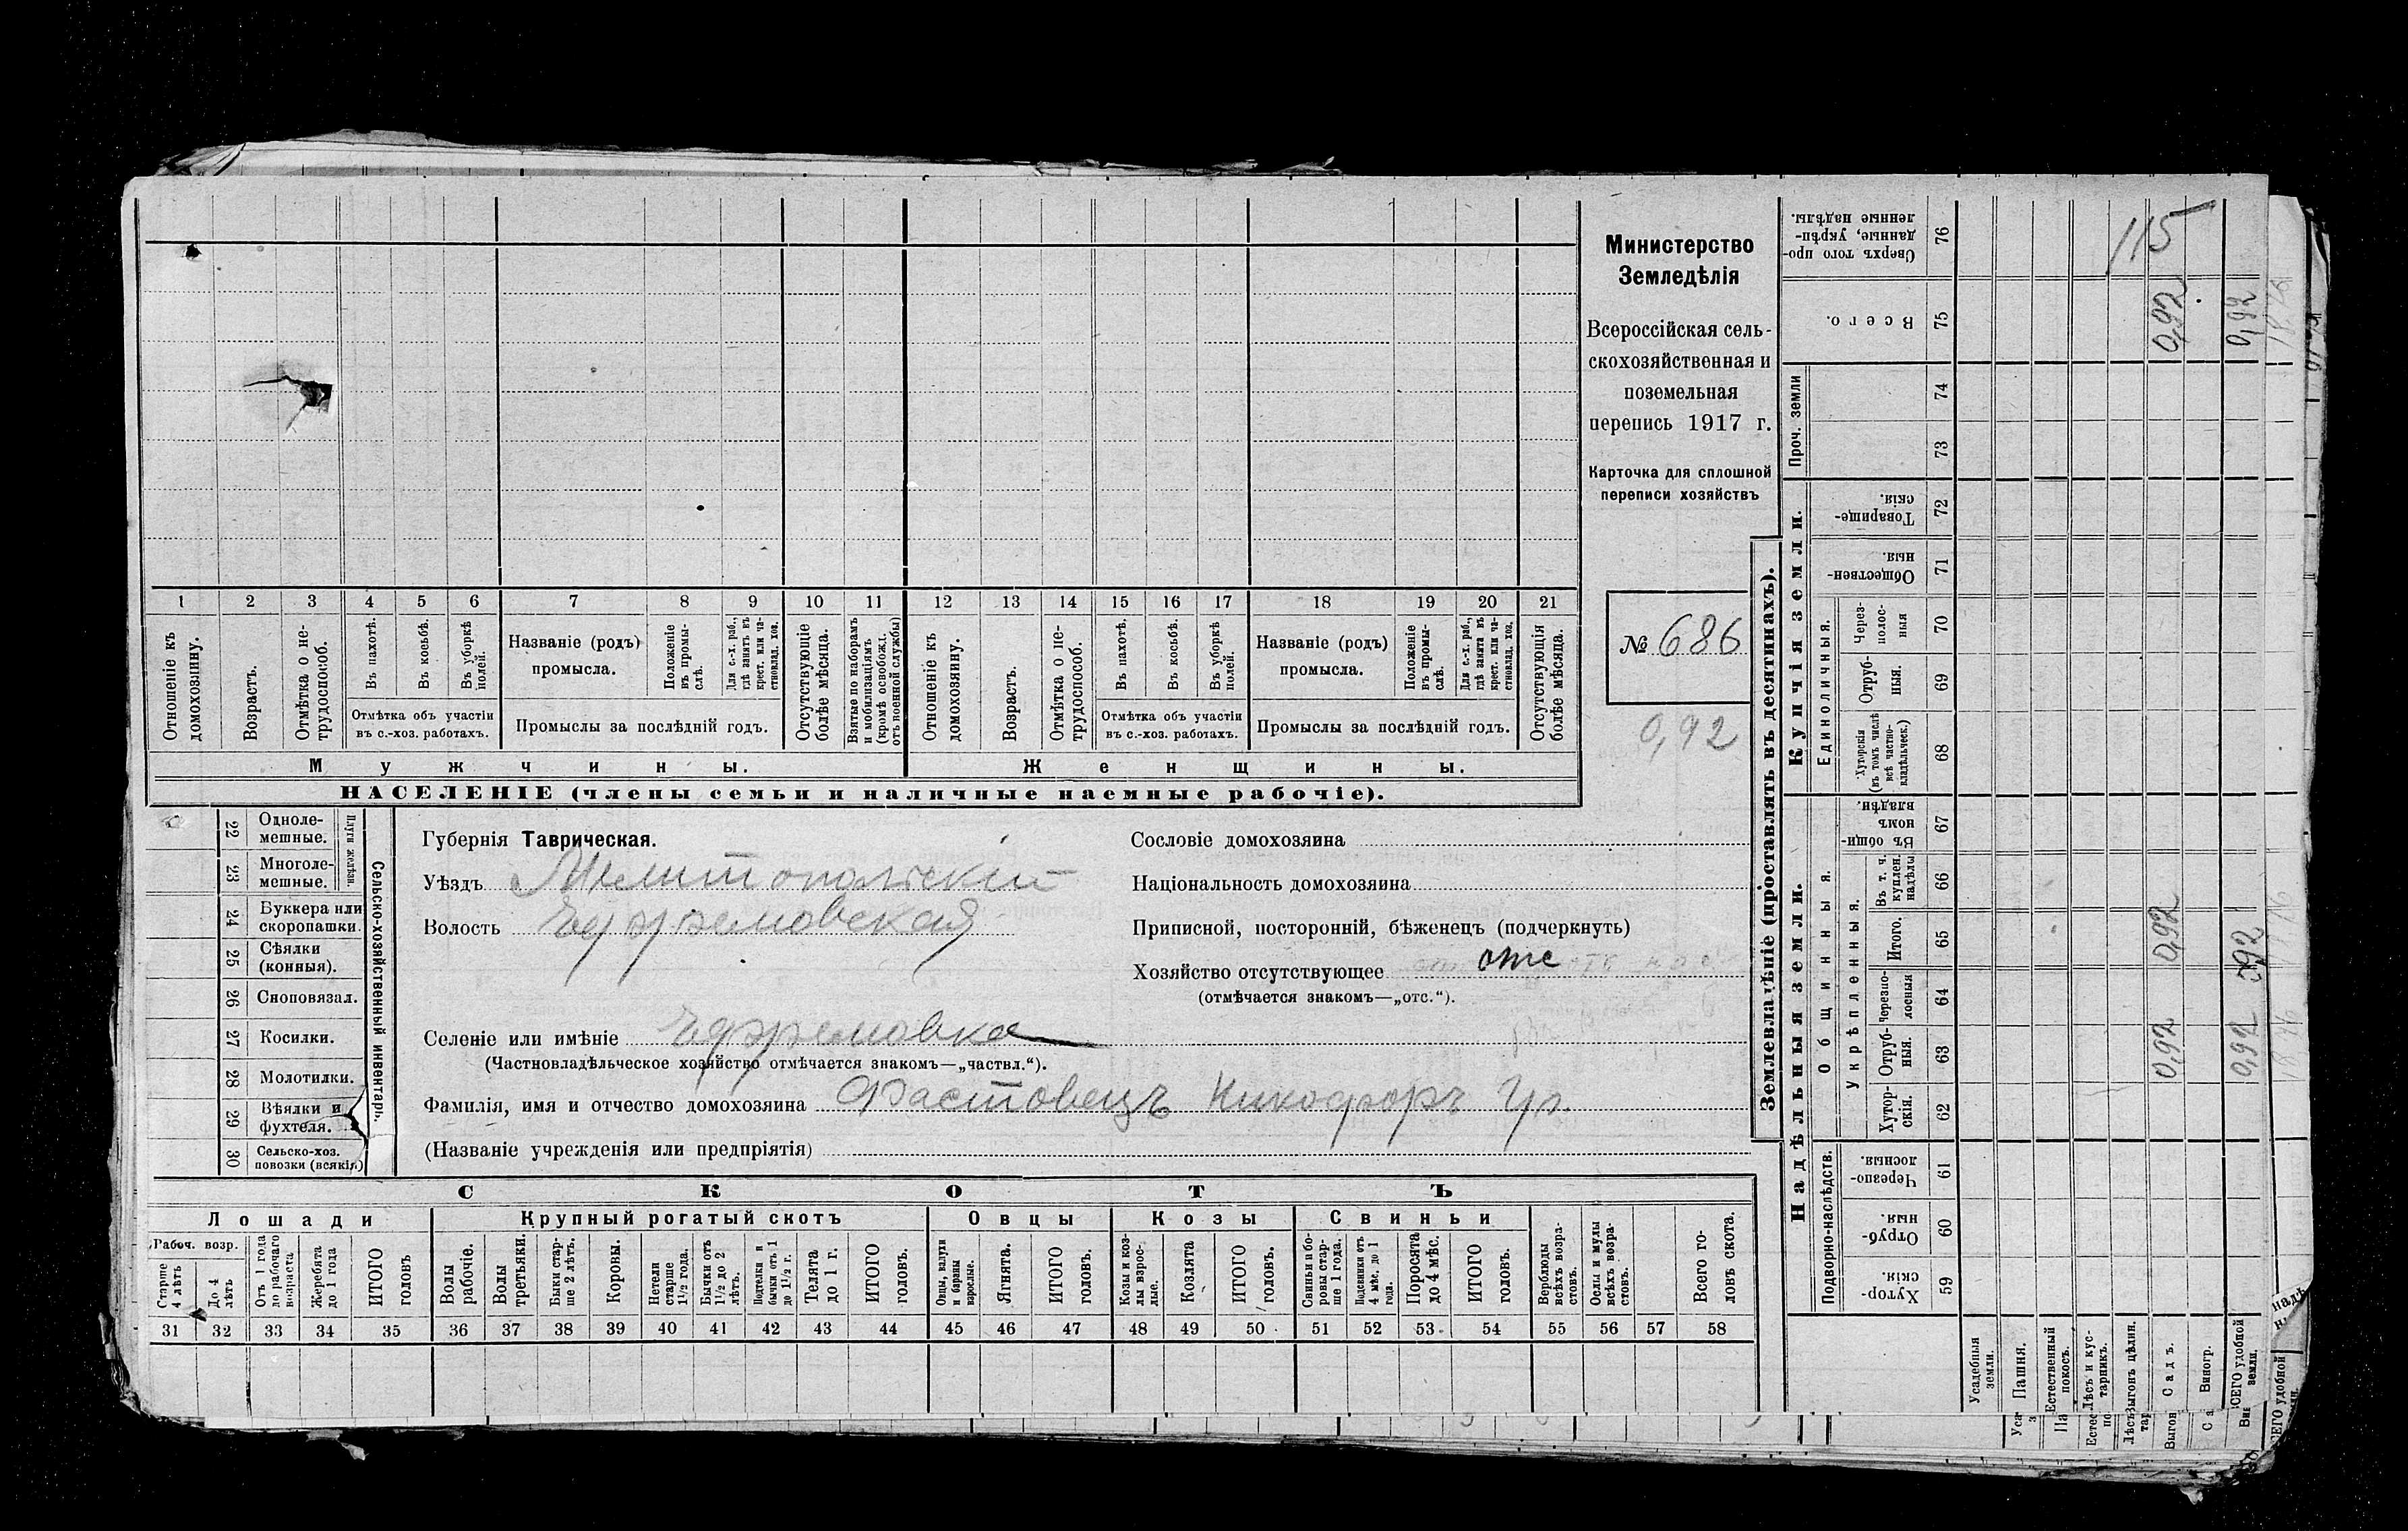 Министерство
Земледѣлія
Всероссійская сель-
скохозяйственная и
поземельная
перепись 1917 г.
Карточка для сплошной
переписи хозяйствъ
№ 686
0,92
1 2 3 4 5 6 7 8 9 10 11 12 13 14 15 16 17 18 19 20 21
Отношеніе къ домохозяину.
Возрастъ.
Отмѣтка о не-
трудоспособ.
Въ пахотѣ.
Въ косьбѣ.
Въ уборкѣ
полей.
Отмѣтка объ участіи
въ с.-хоз. работахъ.
Названіе (родъ)
промысла.
Положеніе
въ промы-
слѣ.
Для с.-х. раб.,
гдѣ занятъ въ
крест. или ча-
стновлад. хоз.
Промыслы за послѣдній годъ.
Отсутствующіе
болѣе мѣсяца.
Взятые по наборамъ
и мобилизаціямъ
(кромѣ освобожд.
отъ военной службы)
Отношеніе къ
домохозяину.
Возрастъ.
Отмѣтка о не-
трудоспособ.
Въ пахотѣ.
Въ косьбѣ.
Въ уборкѣ
полей.
Отмѣтка объ участіи
въ с.-хоз. работахъ.
Названіе (родъ)
промысла.
Положеніе
въ промы-
слѣ.
Для с.-х. раб.,
гдѣ занята въ
крест. или ча-
стновлад. хоз.
Промыслы за послѣдній годъ.
Отсутствующія
болѣе мѣсяца.
Мужчины.
Женщины.
НАСЕЛЕНІЕ (члены семьи и наличные наемные рабочіе).
22 Одноле-
мешные.
23 Многоле-
мешные.
Плуги желѣзн.
24 Буккера или
скоропашки.
25 Сѣялки
(конныя).
26 Сноповязал.
27 Косилки.
28 Молотилки.
29 Вѣялки и
фухтеля.
30 Сельско-хоз.
повозки (всякія)
Сельско-хозяйственный инвентарь.
Губернія Таврическая.
Уѣздъ Мелитопольскій
Волость Ефремовская
Селеніе или имѣніе Ефремовка
(Частновладѣльческое хозяйство отмѣчается знакомъ—„частвл.“).
Фамилія, имя и отчество домохозяина Фастовецъ Никофоръ Гр.
(Названіе учрежденія или предпріятія)
Сословіе домохозяина
Національность домохозяина
Приписной, посторонній, бѣженецъ (подчеркнуть)
Хозяйство отсутствующее отс
(отмѣчается знакомъ—„отс.“).
СКОТЪ
Лошади
Крупный рогатый скотъ
Овцы
Козы
Свиньи
Рабоч. возр.
Старше
4 лѣтъ
До 4
лѣтъ
Отъ 1 года
до рабочаго
возраста
Жеребята
до 1 года
ИТОГО
головъ
Волы
рабочіе.
Волы
третьяки.
Быки стар-
ше 2 лѣтъ.
Коровы.
Нетели
старше
1½ года.
Бычки отъ
1½ до 2
лѣтъ.
Подтелки и
бычки отъ 1
до 1½ г.
Телята
до 1 г.
ИТОГО
головъ.
Овцы, валухи
и бараны
взрослые.
Ягнята.
ИТОГО
головъ.
Козы и коз-
лы взрос-
лые.
Козлята
ИТОГО
головъ.
Свиньи и бо-
ровы стар-
ше 1 года.
Подсвинки отъ
4 мѣс. до 1
года.
Поросята
до 4 мѣс.
ИТОГО
головъ.
Верблюды
всѣхъ возра-
стовъ.
Ослы и мулы
всѣхъ возра-
стовъ.
Всего го-
ловъ скота.
31 32 33 34 35 36 37 38 39 40 41 42 43 44 45 46 47 48 49 50 51 52 53 54 55 56 57 58
Землевладѣніе (проставлять въ десятинахъ).
Надѣльныя земли.
Купчія земли.
Проч. земли
Подворно-наслѣдств.
Общинныя.
Укрѣпленныя.
Единоличныя.
59 Хутор-
скія.
60 Отруб-
ныя.
61 Черезпо-
лосныя.
62 Хутор-
скія.
63 Отруб-
ныя.
64 Черезпо-
лосныя
65 Итого.
66 Въ т. ч.
куплен.
надѣлы
67 Въ общи-
номъ
владѣн.
68 Хуторскія
(въ томъ числѣ
всѣ частно-
владѣльческ.)
69 Отруб-
ныя.
70 Через-
полос-
ныя
71 Обществен-
ныя.
72 Товарище-
скія.
73
74
75 Всего.
76 Сверхъ того про-
данные, укрѣп-
ленные надѣлы.
115
0,92 0,92
0,92 0,92
0,92 0,92
Усадебныя
земли.
Пашня.
Естественный
покосъ.
Лѣсъ и кус-
тарникъ.
Выгонъ цѣлин.
Садъ.
Виногр.
ВСЕГО удобной
земли.